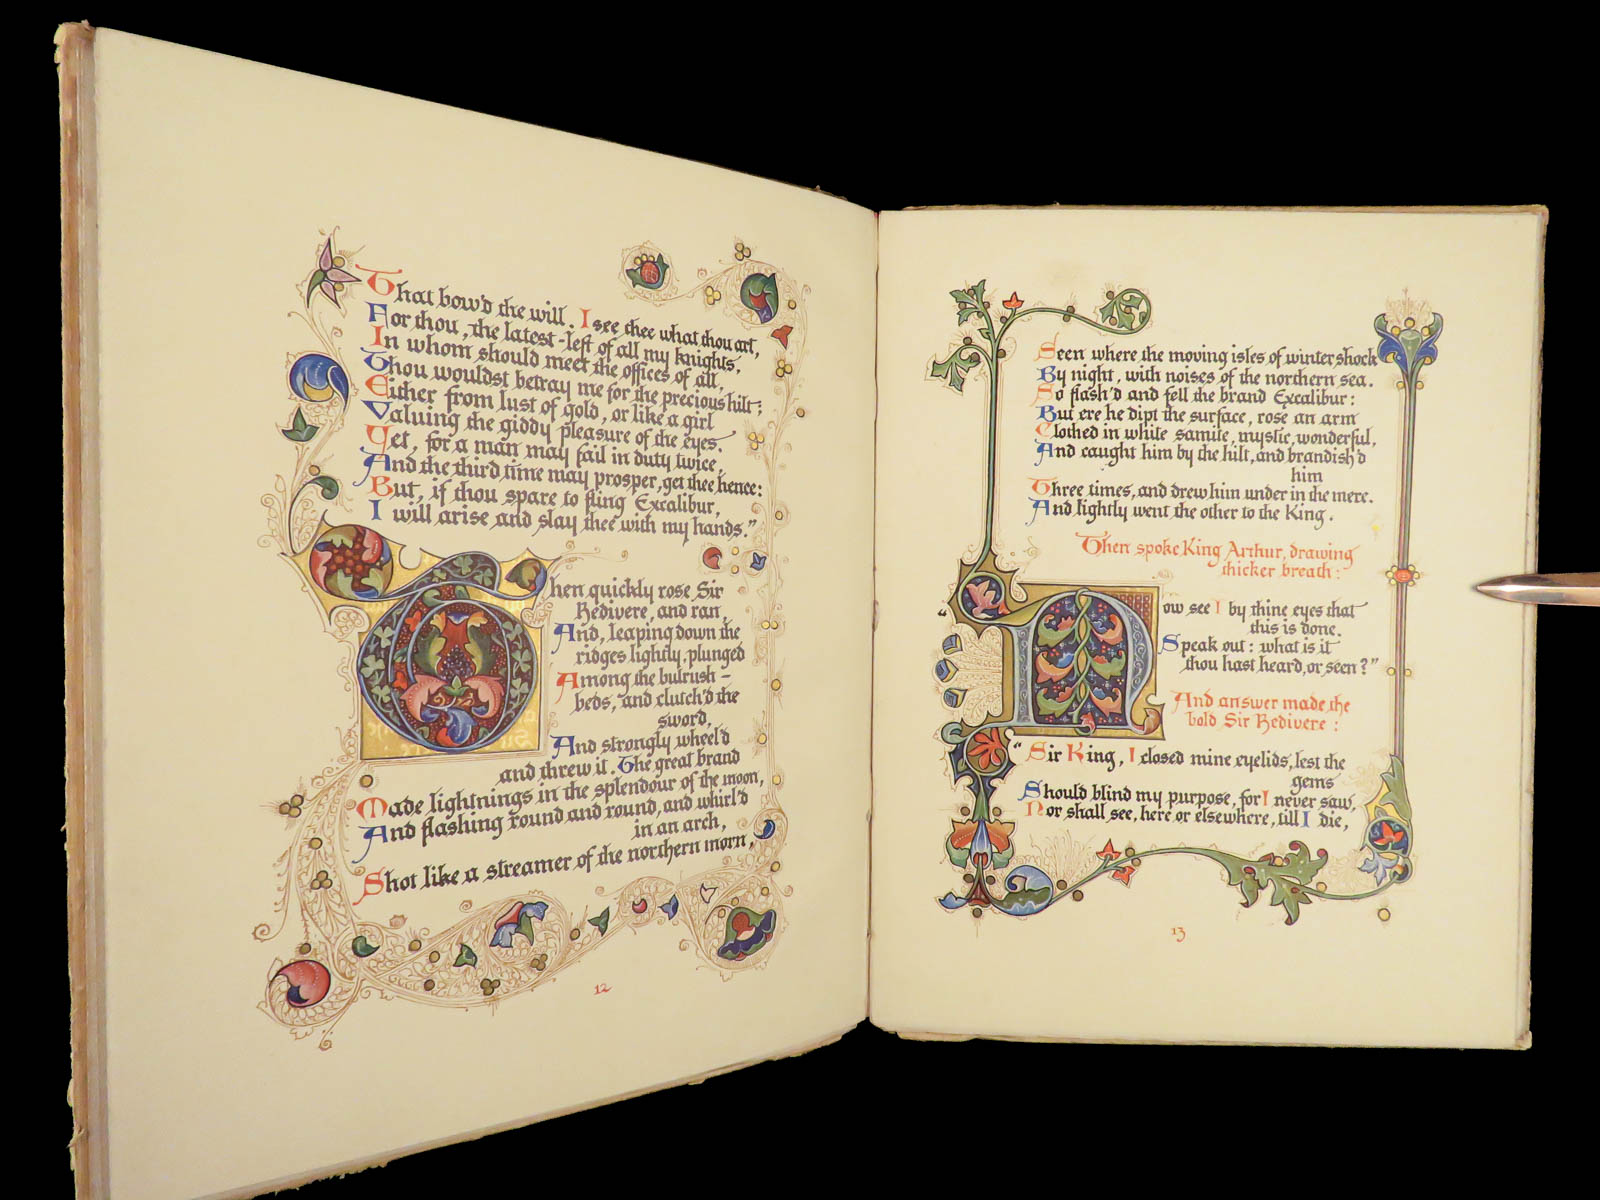 That bow'd the will. I see thee what thou art,
For thou, the latest-left of all my knights,
In whom should meet the offices of all,
Thou wouldst betray me for the precious hilt;
Either from lust of gold, or like a girl
Valuing the giddy pleasure of the eyes.
Yet, for a man may fail in duty twice,
And the third time may prosper, get thee hence:
But, if thou spare to fling Excalibur,
I will arise and slay thee with my hands."
Then quickly rose Sir
Bedivere, and ran,
And, leaping down the
ridges lightly, plunged
Among the bulrush-
beds, and clutch'd the
sword,
And strongly wheel'd
and threw it. The great brand
Made lightnings in the splendour of the moon,
And flashing round and round, and whirl'd
in an arch,
Shot like a streamer of the northern morn,
12
Seen where the moving isles of winter shock
By night, with noises of the northern sea.
So flash'd and fell the brand Excalibur:
But ere he dipt the surface, rose an arm
Clothed in white samite, mystic, wonderful,
And caught him by the hilt, and brandish'd
him
Three times, and drew him under in the mere.
And lightly went the other to the King.
Then spoke King Arthur, drawing
thicker breath:
"Now see I by thine eyes that
this is done.
Speak out: what is it
thou hast heard, or seen?"
And answer made the
bold Sir Bedivere:
"Sir King, I closed mine eyelids, lest the
gems
Should blind my purpose, for I never saw,
Nor shall see, here or elsewhere, till I die,
13